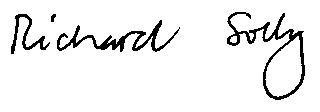 Richard Solly